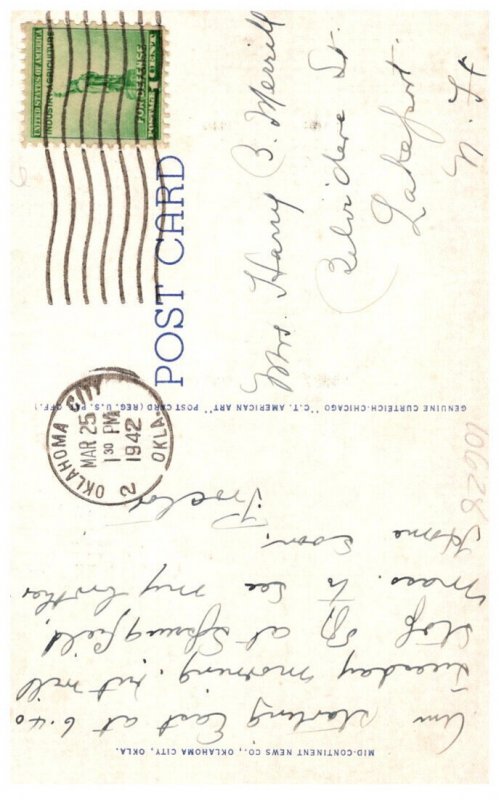 Am starting East at 6.40
Tuesday morning, but will
stop off at Springfield,
Mass. to see my brother
Home soon.
Proctor
MID-CONTINENT NEWS CO., OKLAHOMA CITY, OKLA.
GENUINE CURTEICH-CHICAGO "C.T. AMERICAN ART" POST CARD (REG. U.S. PAT. OFF.)
106628
POST CARD
OKLAHOMA CITY
MAR 25
1 30 PM
1942
OKLA.
2
UNITED STATES OF AMERICA
INDUSTRY-AGRICULTURE
FOR DEFENSE
POSTAGE 1 CENT
Mrs. Harry B. Merrill
Belvidere St.
Lakeport.
N. H.